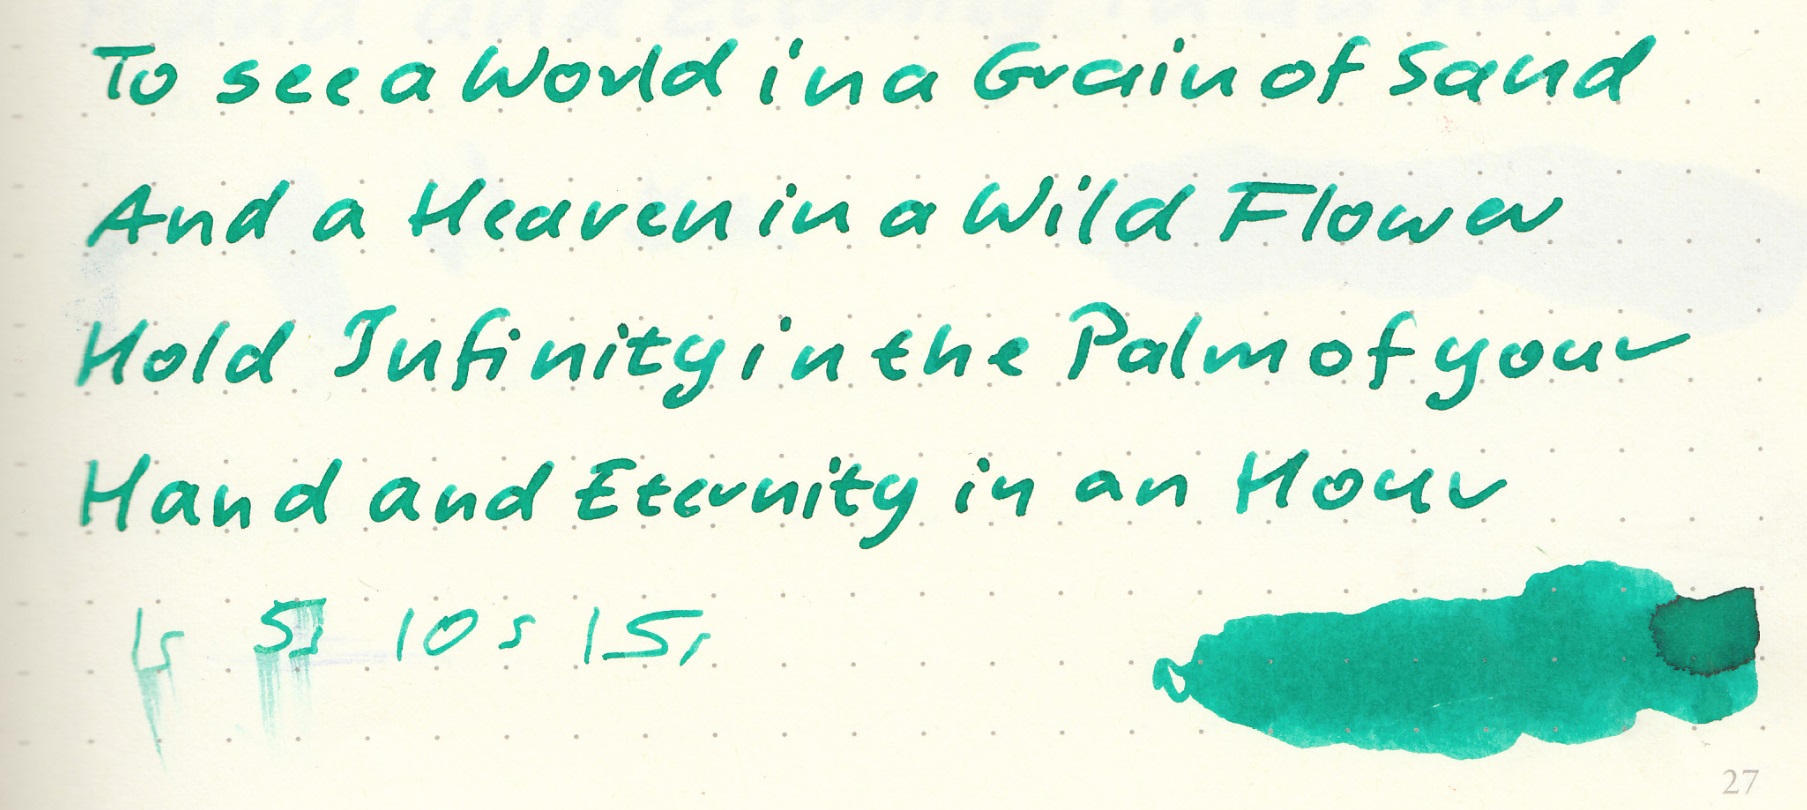 To see a World in a Grain of Sand
And a Heaven in a Wild Flower
Hold Infinity in the Palm of your
Hand and Eternity in an Hour
1s 5s 10s 15s
27